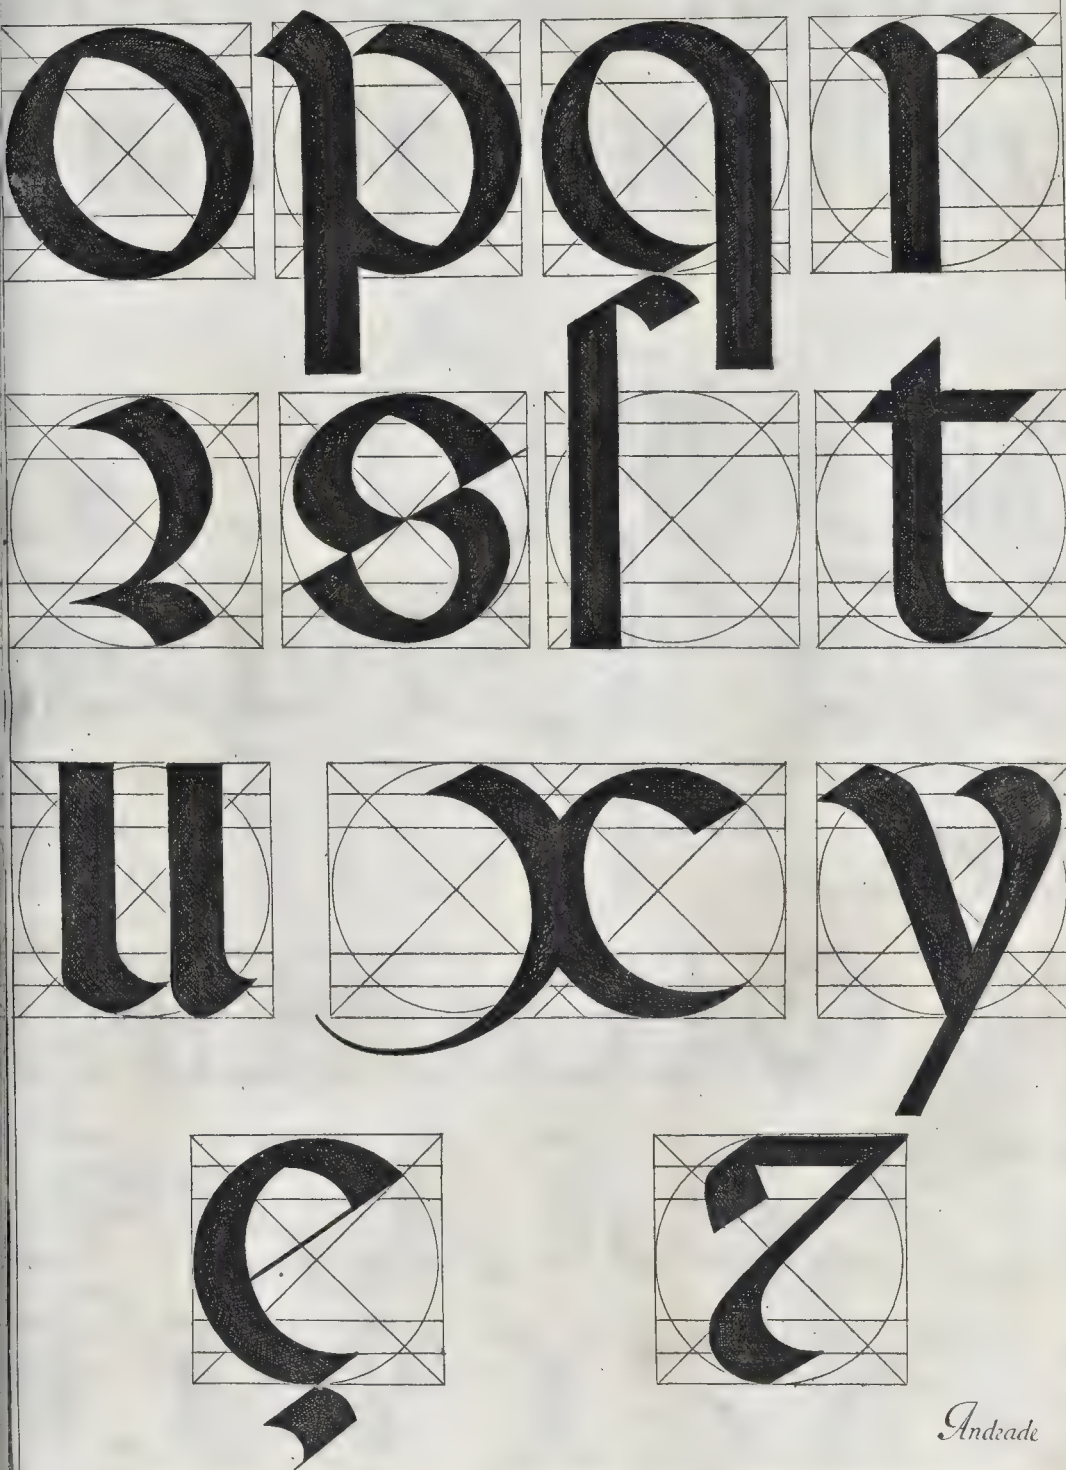 o p q r
ꝛ s ſ t
u x y
ę z
Andrade